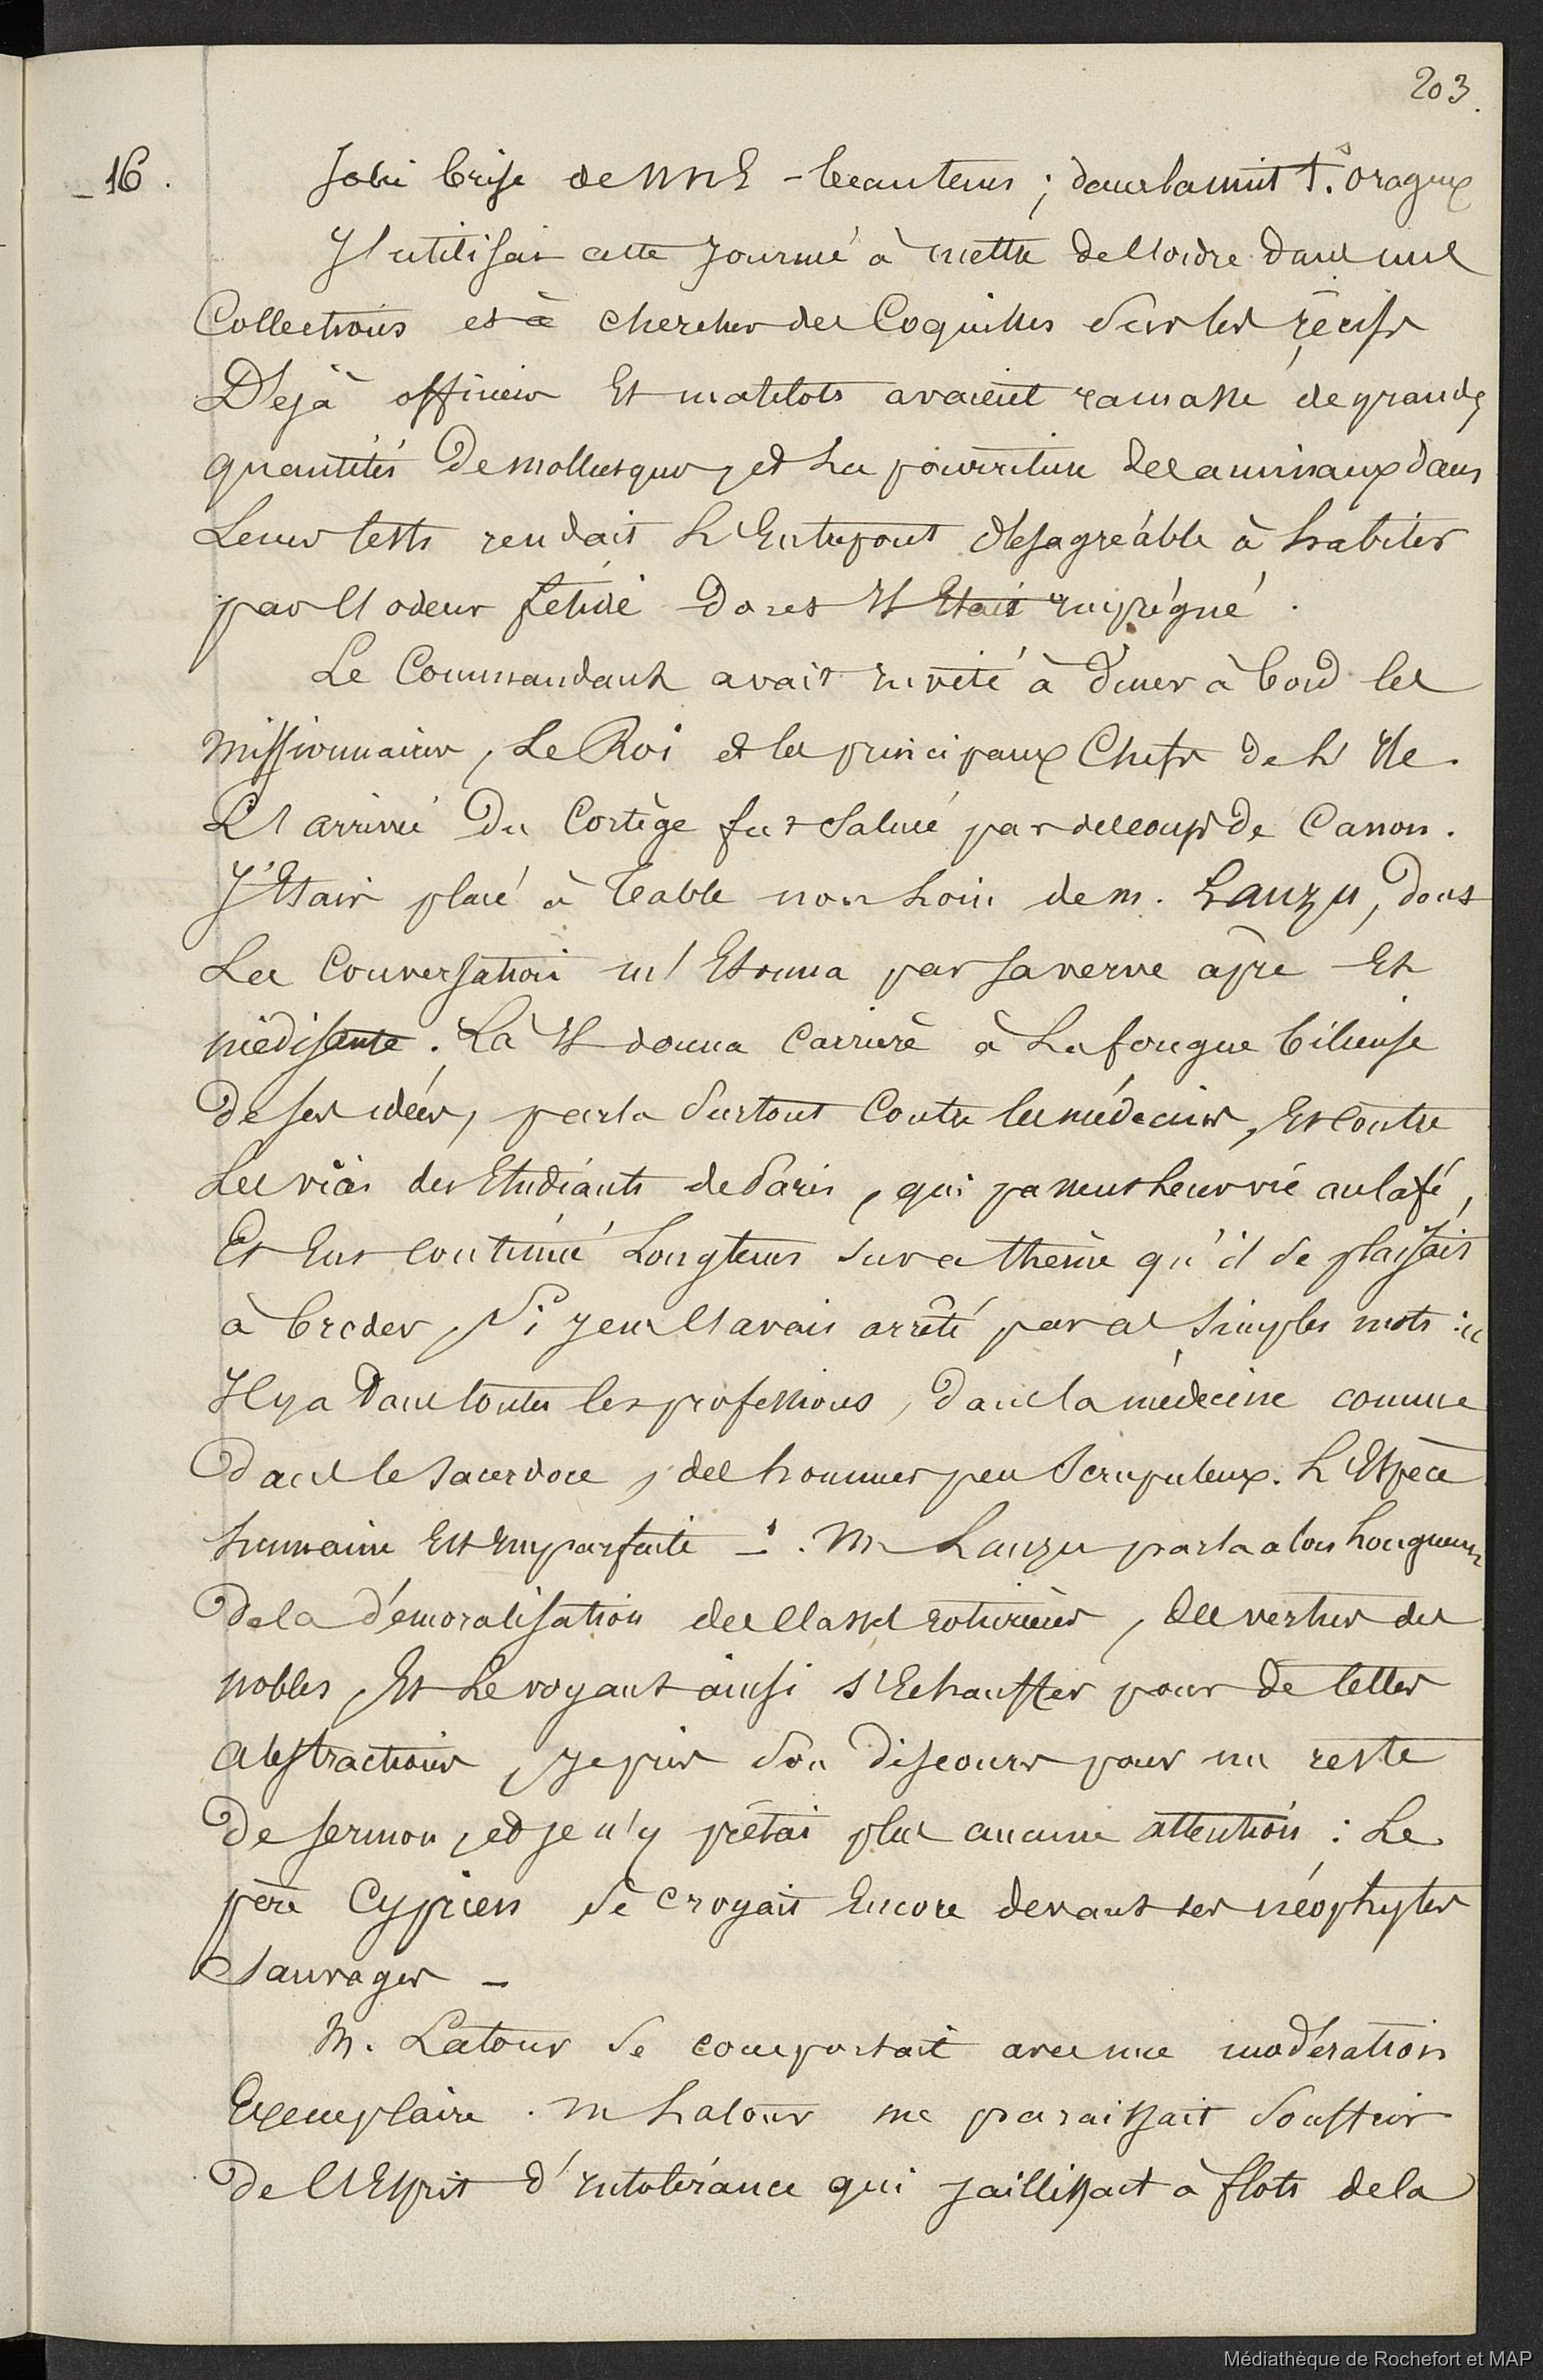 203.
_ 16. Jolie brise de NNE - beau tems ; dans la nuit t.s orageux
J'utilisai cette journée à mettre de l'ordre dans mes
Collections et à chercher des Coquilles sur les récifs
Déjà officiers Et matelots avaient ramassé de grandes
quantités de mollusques, et la pourriture des animaux dans
Leurs tests rendait L'Entrepont désagréable à habiter
par l'odeur fétide dont Il Etait imprégné.
Le Commandant avait invité à diner à bord les
missionnaires, Le Roi et les principaux Chefs de L'Ile.
L'arrivée du Cortège fut saluée par des coups de Canon.
J'Etais placé à Table non Loin de m. Lauzu, dont
La Conversation m'Etonna par sa verve âpre Et
médisante. Là Il donna Carrière à La fougue bilieuse
de ses idées, parla surtout Contre les médecins, Et Contre
Les des Etudiants de Paris, qui passent Leur vie au Café,
Et Eut continué Longtems sur ce thême qu'il se plaisait
à broder, Si je ne l'avais arrêté par ces simples mots : "
Il y a dans toutes les professions, dans la médecine comme
dans le sacerdoce, des hommes peu scrupuleux. L'Espèce
humaine Est Imparfaite -". M Lauzu parla alors Longuement
de la démoralisation des classes roturières, des vertus des
nobles, Et Le voyant ainsi s'Echauffer pour de telles
abstractions, je pris son discours pour un reste
de sermon, et je n'y prêtai plus aucune attention : Le
père Cyprien se croyait Encore devant ses néophytes
Sauvages -
M. Latour se comportait avec une modération
Exemplaire. M Latour me paraissait souffrir
de l'Esprit d'intolérance qui jaillissait à flots de la
Médiathèque de Rochefort et MAP